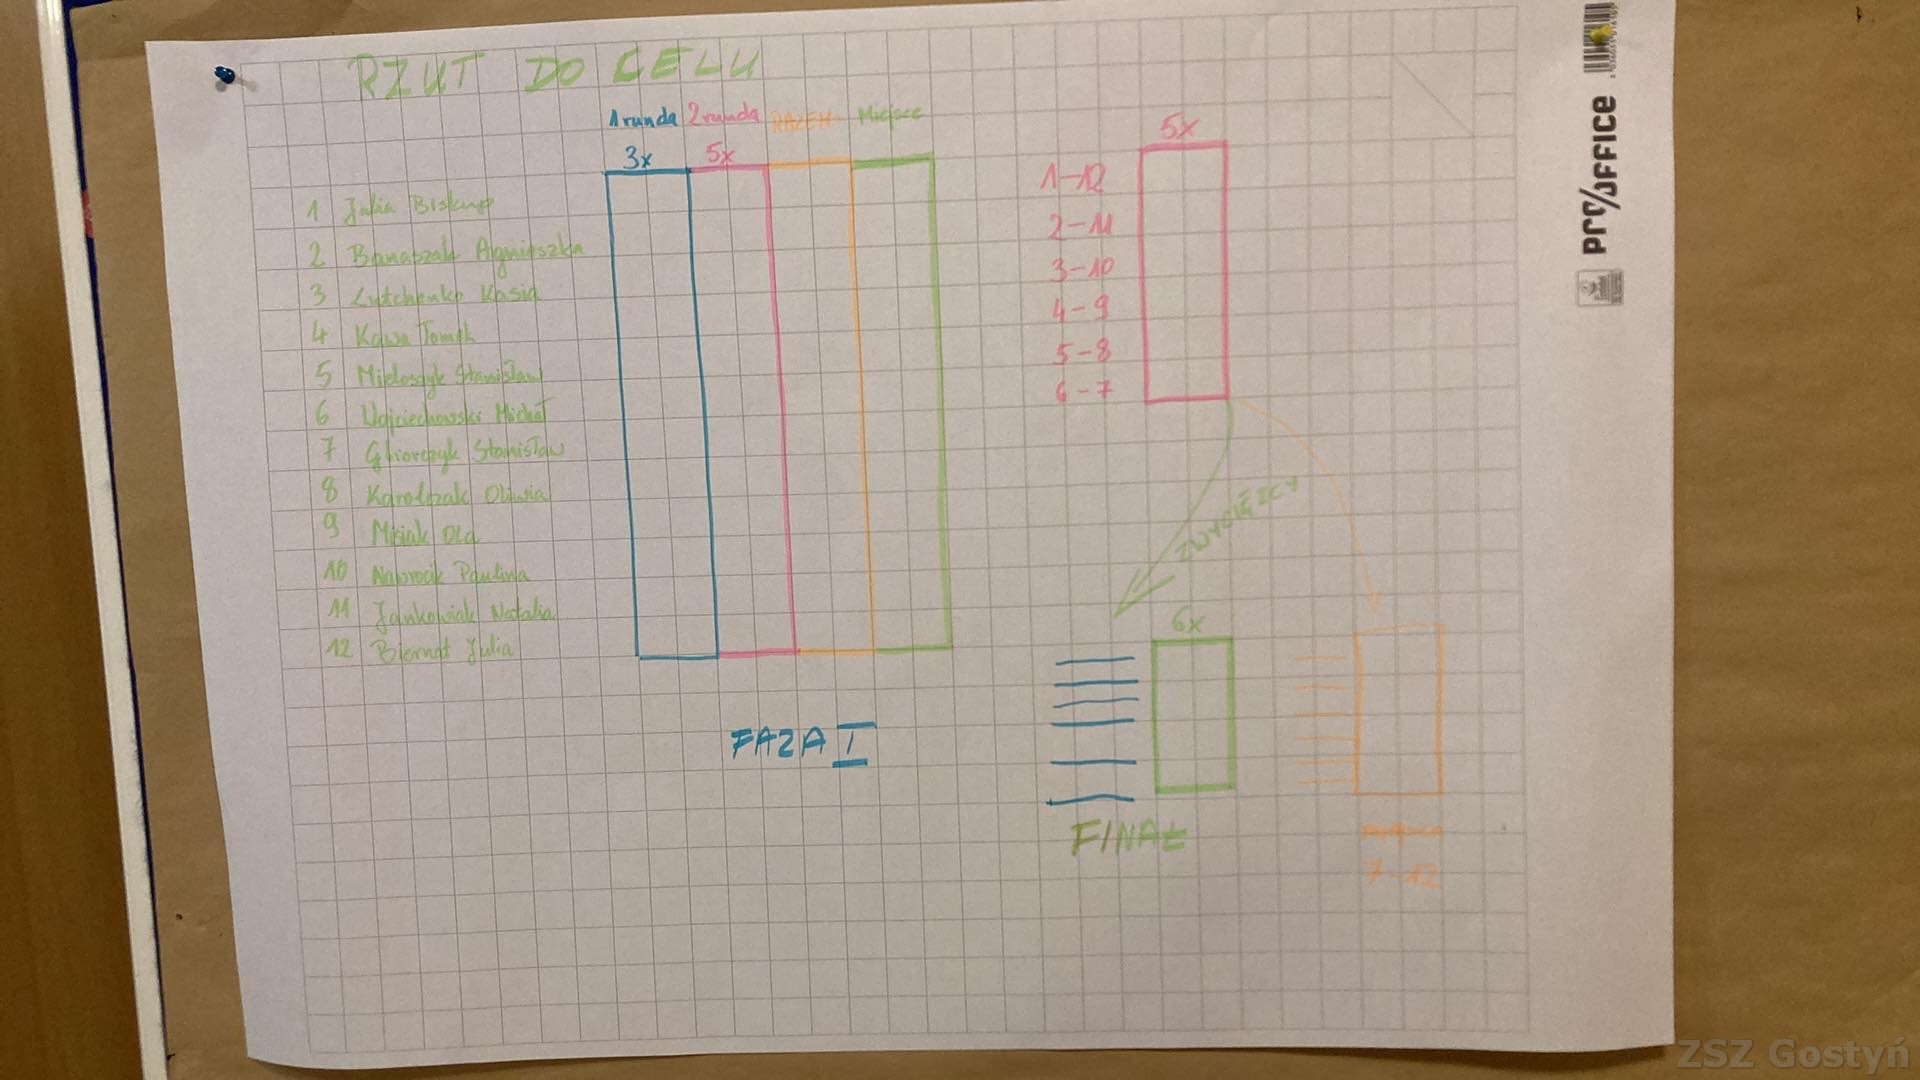 RZUT DO CELU
1 runda 2 runda RAZEM Miejsce
3x 5x
1 Julia Biskup
2 Banaszak Agnieszka
3 Lytchenko Kasia
4 Kawa Tomek
5 Stanisław
6 Wojciechowski Michał
7 Stanisław
8 Karolczak Oliwia
9 Misiak Ola
10 Nawrocik Paulina
11 Jankowiak Natalia
12 Biernat Julia
FAZA I
5x
1-12
2-11
3-10
4-9
5-8
6-7
ZWYCIĘZCY
6x
FINAŁ
7-12
PROOFFICE
ZSZ Gostyń